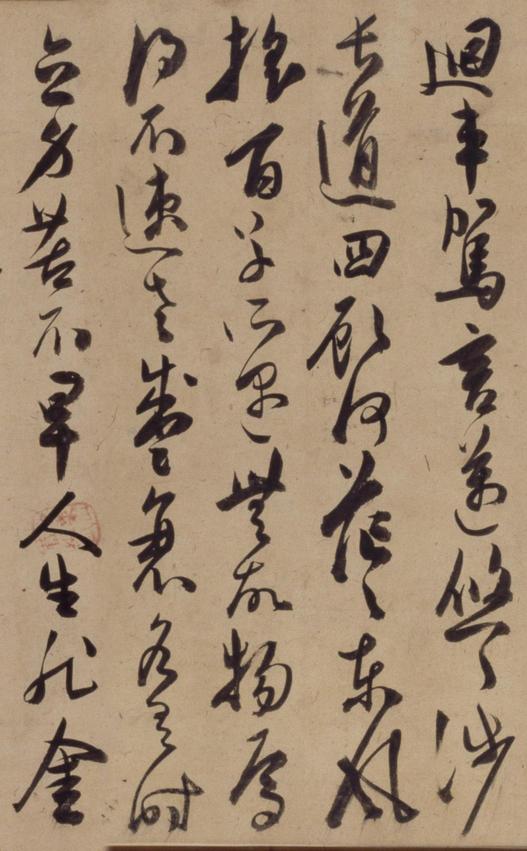 迴車駕言邁悠〻涉
長道四顧何茫〻東風
搖百草所遇無故物焉
得不速老盛衰各有時
立身苦不早人生非金